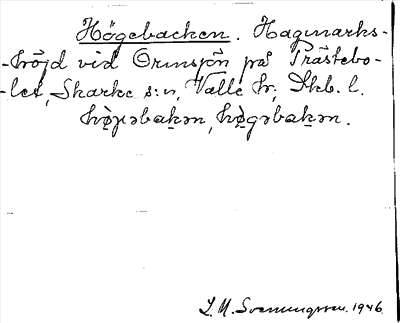 Högebacken. Hagmarks-
-höjd vid Ormsjön på Prästebo-
-let, Skarke s:n, Valle hr, Skb. l.
hø̀ɟəbaḵən, hø̀gəbaḵən.
L. M. Svenungsson. 1946